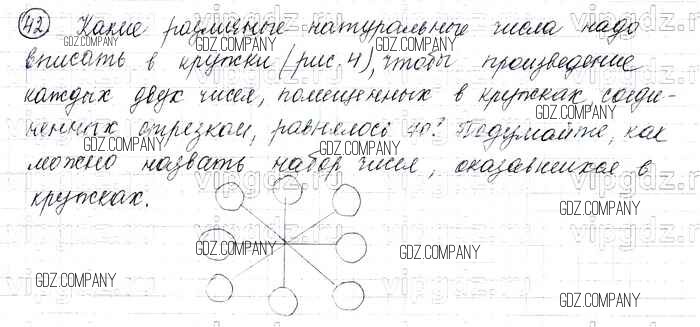 42 Какие различные натуральные числа надо
вписать в кружки (рис. 4), чтобы произведение
каждых двух чисел, помещенных в кружках, соеди-
ненных отрезком, равнялось 40? Подумайте, как
можно назвать набор чисел, оказавшихся в
кружках.
GDZ.COMPANY
GDZ.COMPANY
GDZ.COMPANY
GDZ.COMPANY
GDZ.COMPANY
GDZ.COMPANY
GDZ.COMPANY
GDZ.COMPANY
GDZ.COMPANY
GDZ.COMPANY
GDZ.COMPANY
vipgdz.ru
vipgdz.ru
vipgdz.ru
vipgdz.ru